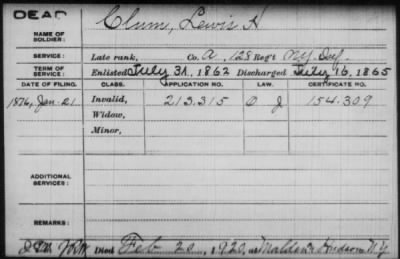 DEAD
NAME OF SOLDIER: Clum, Lewis H
SERVICE: Late rank, Co. A, 128 Reg't NY Inf.
TERM OF SERVICE: Enlisted July 31, 1862 Discharged July 16, 1865
DATE OF FILING. CLASS. APPLICATION NO. LAW. CERTIFICATE NO.
1876, Jan. 21 Invalid, 213.315 J 154.309
Widow,
Minor,
ADDITIONAL SERVICES:
REMARKS:
Died Feb 20, 1920, at Malden Hudson N.Y.